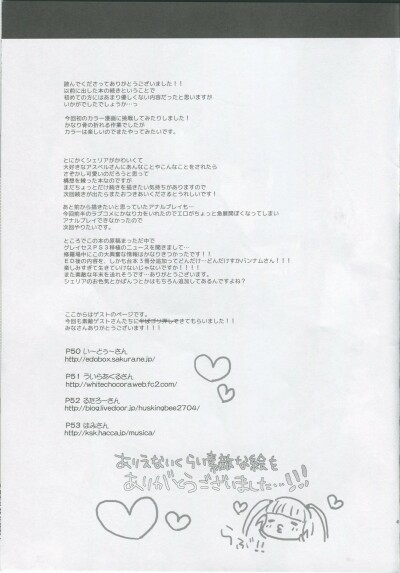 読んでくださってありがとうございました！！
以前に出した本の続きということで
初めての方にはあまり優しくない内容だったと思いますが
いかがでしたでしょうか…っ
今回初のカラー漫画に挑戦してみたりしました！
かなり骨の折れる作業でしたが
カラーは楽しいのでまたやってみたいです。
とにかくシェリアがかわいくて
大好きなアスベルさんにあんなことやこんなことをされたら
さぞかし可愛いのだろうと思って
構想を練った本なのですが
まだちょっとだけ続きを描きたい気持ちがありますので
次回続きが出たらまたおつきあいくださるとうれしいです！
あと前から描きたいと思っていたアナルプレイも…
今回前半のラブコメにかなり力をいれたのでエロがちょっと急展開ぽくなってしまい
アナルプレイできなかったので
次回やりたいです。
ところでこの本の原稿まっただ中で
グレイセスＰＳ３移植のニュースを聞きまして…
修羅場中にこの大興奮な情報はかなりきつかったです！！
ＥＤ後の内容を、しかも台本３冊分追加ってどんだけ…どんだけすかバンナムさん！！！
楽しみすぎて生きていけないじゃないですか！！！！
また素敵な年末を送れそうです…ありがとうございます。
シェリアのお色気とかぱんつとかはもちろん追加してあるんですよね？
ここからはゲストのページです。
今回も素敵ゲストさんたちにきてもらいました！！
みなさんありがとうございます！！！
P50 いーどぅーさん
http://edobox.sakura.ne.jp/
P51 ういらあくるさん
http://whitechocora.web.fc2.com/
P52 るたろーさん
http://blog.livedoor.jp/huskingbee2704/
P53 はみさん
http://ksk.hacca.jp/musica/
ありえないくらい素敵な絵を
ありがとうございました…!!!
らぶ!!